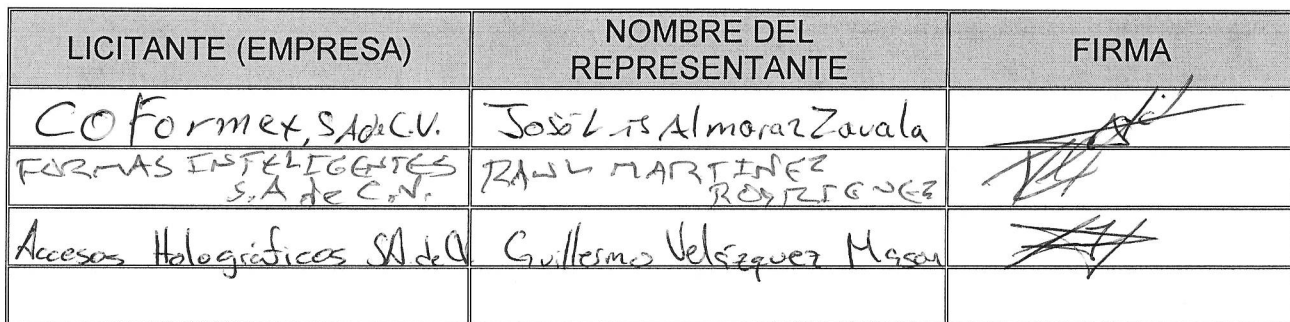 LICITANTE (EMPRESA) NOMBRE DEL REPRESENTANTE FIRMA
COFormex, S.A de C.V. José L is Almaraz Zavala
FORMAS INTELIGENTES S.A de C.V. RAUL MARTINEZ RODRIGUEZ
Accesos Holográficos SA de CV Guillermo Velázquez